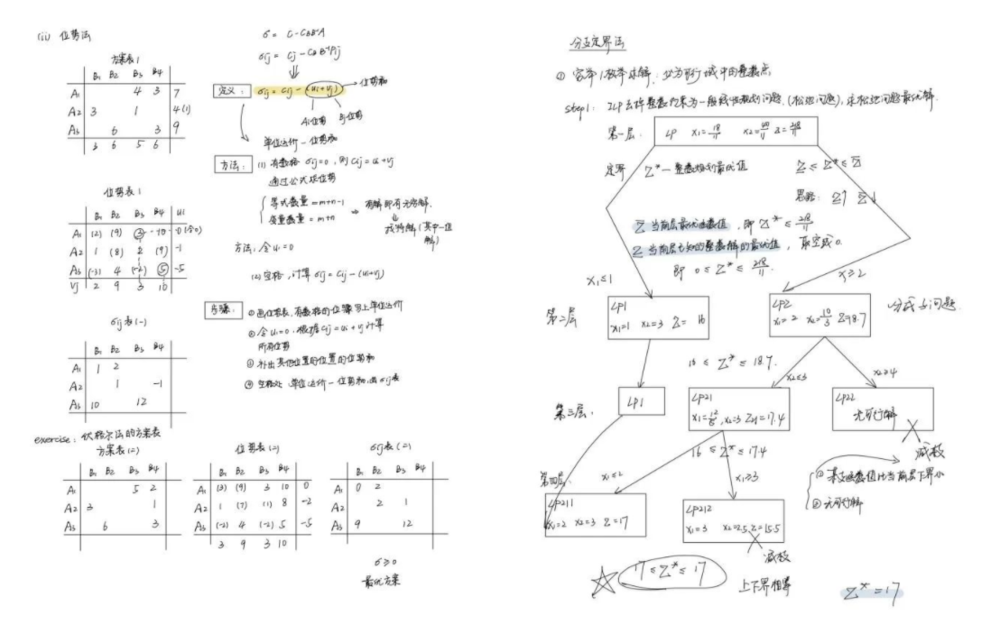 (ii) 位势法
方案表1
B₁ B₂ B₃ B₄
A₁ 4 3 7
A₂ 3 1 4(1)
A₃ 6 3 9
3 6 5 6
位势表1
B₁ B₂ B₃ B₄ ui
A₁ (2) (9) 3 10 0(令0)
A₂ 1 (8) 2 (9) -1
A₃ (-3) 4 (-2) 5 -5
Vj 2 9 3 10
σij表(-)
B₁ B₂ B₃ B₄
A₁ 1 2
A₂ 1 -1
A₃ 10 12
σ = C-CBB⁻¹A
σij = Cj - CBB⁻¹Pij
定义: σij = Cij - (ui+vj) 位势和
Ai位势 Bj位势
单位运价 - 位势和
方法: (1) 有数格 σij=0, 则 Cij = ui + vj
通过公式求位势
等式数量 = m+n-1
变量数量 = m+n
有解即有无穷解.
找特解(其中一组解)
方法: 令 u₁ = 0
(2) 空格, 计算 σij = Cij - (ui+vj)
步骤: ① 画位势表, 有数格的位置写上单位运价
② 令 u₁=0. 根据 Cij = ui + vj 计算
所有位势
③ 补出其他位置的位置的位势和
④ 空格处 单位运价 - 位势和, 画σij表
exercise: 伏格尔法的方案表
方案表(2)
B₁ B₂ B₃ B₄
A₁ 5 2
A₂ 3 1
A₃ 6 3
位势表(2)
B₁ B₂ B₃ B₄
A₁ (3) (9) 3 10 0
A₂ 1 (7) (1) 8 -2
A₃ (-2) 4 (-2) 5 -5
3 9 3 10
σij表(2)
B₁ B₂ B₃ B₄
A₁ 0 2
A₂ 2 1
A₃ 9 12
σ≥0
最优方案
分支定界法
① 穷举/枚举求解: 必为可行域中的整数点;
step1: ILP去掉整数约束为一般线性规划问题, (松弛问题), 求松弛问题最优解.
第一层: LP
定界 Z* — 整数规划最优值 Z ≤ Z* ≤ Z̄
思路: Z↑ Z̄↓
Z̄ 当前层最优函数值, 即 Z* ≤ 218/11
Z 当前层已知的整数解的最优值, 取空或0
即 0 ≤ Z* ≤ 218/11
x₁≤1 x₁≥2
第二层 LP1 LP2 分成子问题
x₁=1 x₂=3 Z= 16
x₁= 2 x₂=10/3 Z=18.7
16 ≤ Z* ≤ 18.7.
x₂≤3 x₂≥4
第三层. LP1 LP21 LP22
x₂=3 Z=17.4
无可行解
剪枝
16 ≤ Z* ≤ 17.4
x₁≤2 x₁≥3
① 某函数值比当前层下界小
② 无可行解
第四层: LP211 LP212
x₁=2 x₂=3 Z=17
x₁=3 x₂=2.5 Z=15.5
剪枝
17 ≤ Z* ≤ 17
上下界相等
Z* = 17